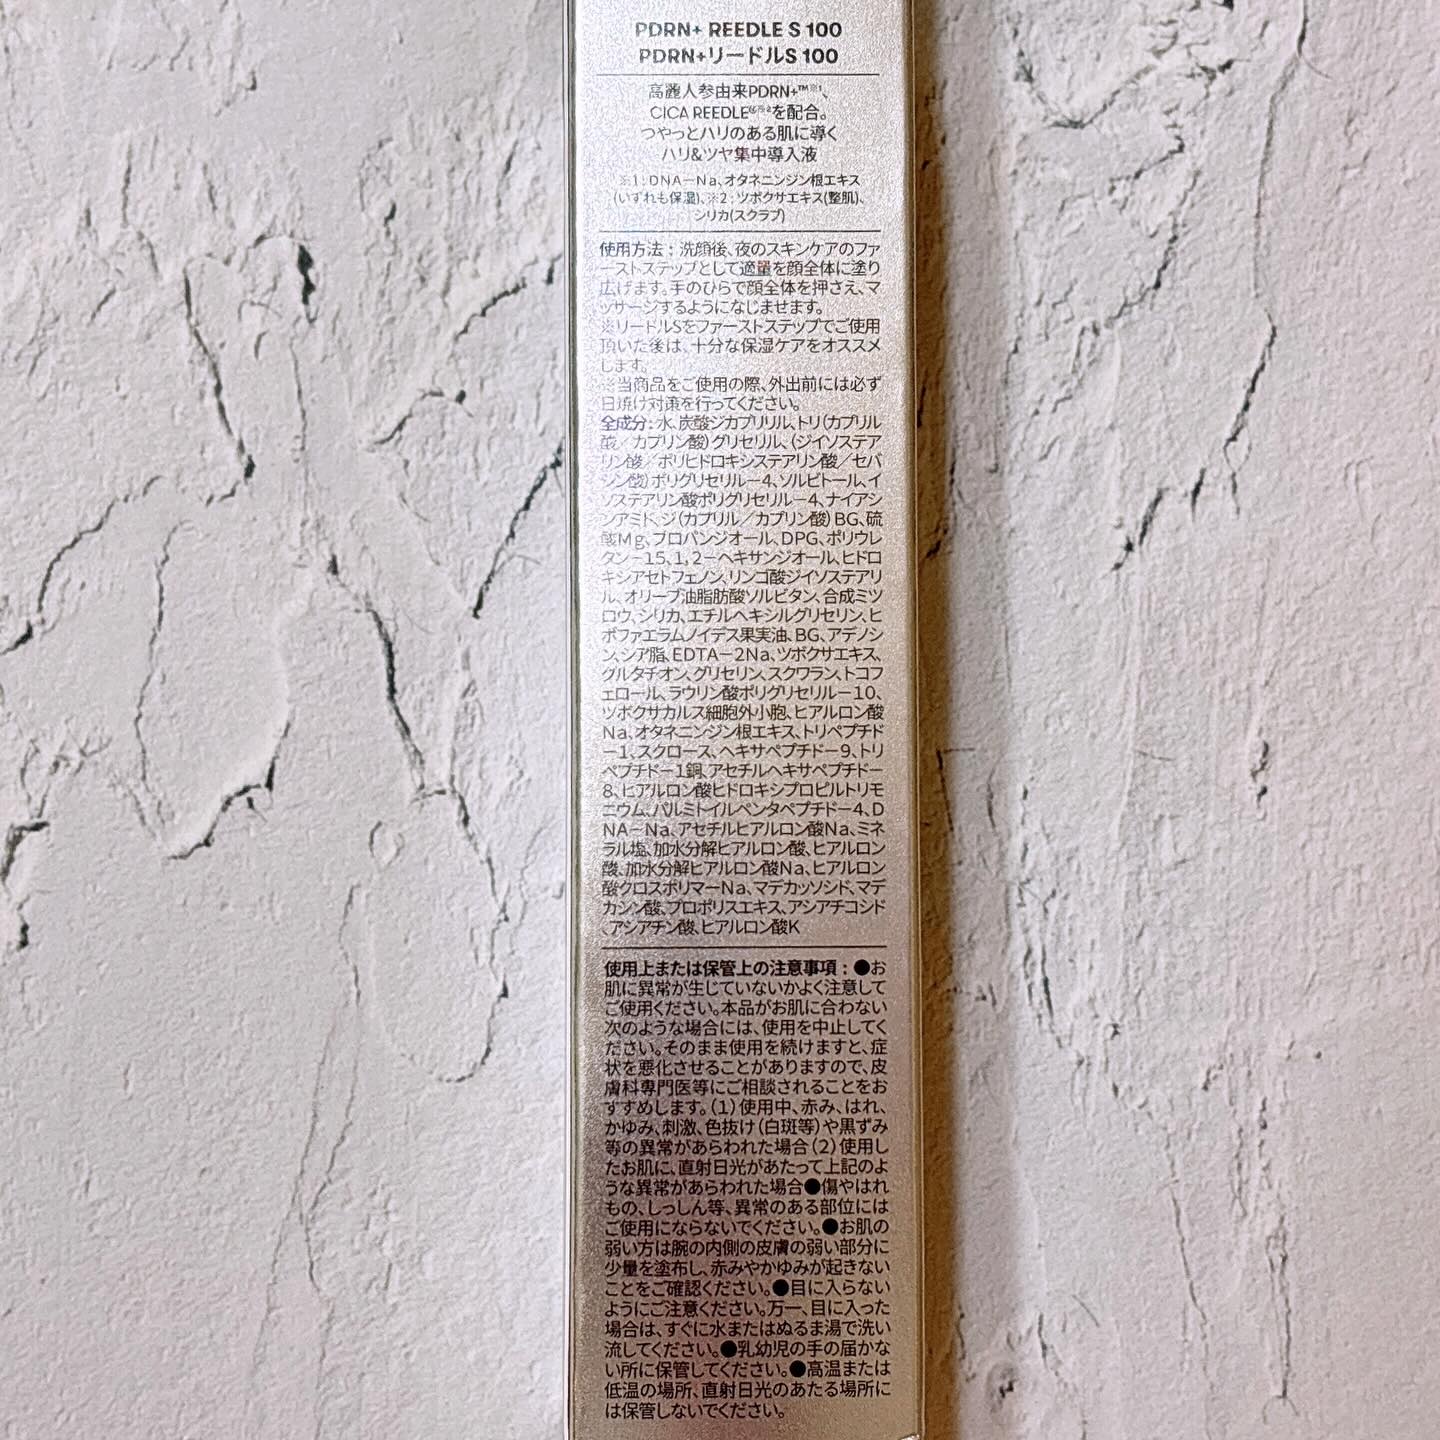 PDRN+ REEDLE S 100
PDRN+リードルS 100
高麗人参由来PDRN+™※1、
CICA REEDLE※2を配合。
つやっとハリのある肌に導く
ハリ&ツヤ集中導入液
※1:DNA-Na、オタネニンジン根エキス
(いずれも保湿)、※2:ツボクサエキス(整肌)、
シリカ(スクラブ)
使用方法:洗顔後、夜のスキンケアのファ
ーストステップとして適量を顔全体に塗り
広げます。手のひらで顔全体を押さえ、マ
ッサージするようになじませます。
※リードルSをファーストステップでご使用
頂いた後は、十分な保湿ケアをオススメ
します。
※当商品をご使用の際、外出前には必ず
日焼け対策を行ってください。
全成分:水、炭酸ジカプリリル、トリ(カプリル
酸/カプリン酸)グリセリル、(ジイソステア
リン酸/ポリヒドロキシステアリン酸/セバ
シン酸)ポリグリセリル-4、ソルビトール、イ
ソステアリン酸ポリグリセリル-4、ナイアシ
ンアミド、ジ(カプリル/カプリン酸)BG、硫
酸Mg、プロパンジオール、DPG、ポリウレ
タン-15、1,2-ヘキサンジオール、ヒドロ
キシアセトフェノン、リンゴ酸ジイソステアリ
ル、オリーブ油脂肪酸ソルビタン、合成ミツ
ロウ、シリカ、エチルヘキシルグリセリン、ヒ
ポファエラムノイデス果実油、BG、アデノシ
ン、シア脂、EDTA-2Na、ツボクサエキス、
グルタチオン、グリセリン、スクワラン、トコフ
ェロール、ラウリン酸ポリグリセリル-10、
ツボクサカルス細胞外小胞、ヒアルロン酸
Na、オタネニンジン根エキス、トリペプチド
-1、スクロース、ヘキサペプチド-9、トリ
ペプチド-1銅、アセチルヘキサペプチド-
8、ヒアルロン酸ヒドロキシプロピルトリモ
ニウム、パルミトイルペンタペプチド-4、D
NA-Na、アセチルヒアルロン酸Na、ミネ
ラル塩、加水分解ヒアルロン酸、ヒアルロン
酸、加水分解ヒアルロン酸Na、ヒアルロン
酸クロスポリマーNa、マデカッソシド、マデ
カシン酸、プロポリスエキス、アシアチコシド
、アシアチン酸、ヒアルロン酸K
使用上または保管上の注意事項:●お
肌に異常が生じていないかよく注意して
ご使用ください。本品がお肌に合わない
次のような場合には、使用を中止してく
ださい。そのまま使用を続けますと、症
状を悪化させることがありますので、皮
膚科専門医等にご相談されることをお
すすめします。(1)使用中、赤み、はれ、
かゆみ、刺激、色抜け(白斑等)や黒ずみ
等の異常があらわれた場合(2)使用し
たお肌に、直射日光があたって上記のよ
うな異常があらわれた場合●傷やはれ
もの、しっしん等、異常のある部位には
ご使用にならないでください。●お肌の
弱い方は腕の内側の皮膚の弱い部分に
少量を塗布し、赤みやかゆみが起きない
ことをご確認ください。●目に入らない
ようにご注意ください。万一、目に入った
場合は、すぐに水またはぬるま湯で洗い
流してください。●乳幼児の手の届かな
い所に保管してください。●高温または
低温の場所、直射日光のあたる場所に
は保管しないでください。